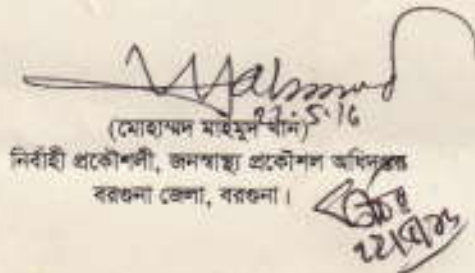 Mahmud
22.5.16
(মোহাম্মদ মাহমুদ খান)
নির্বাহী প্রকৌশলী, জনস্বাস্থ্য প্রকৌশল অধিদপ্তর
বরগুনা জেলা, বরগুনা।